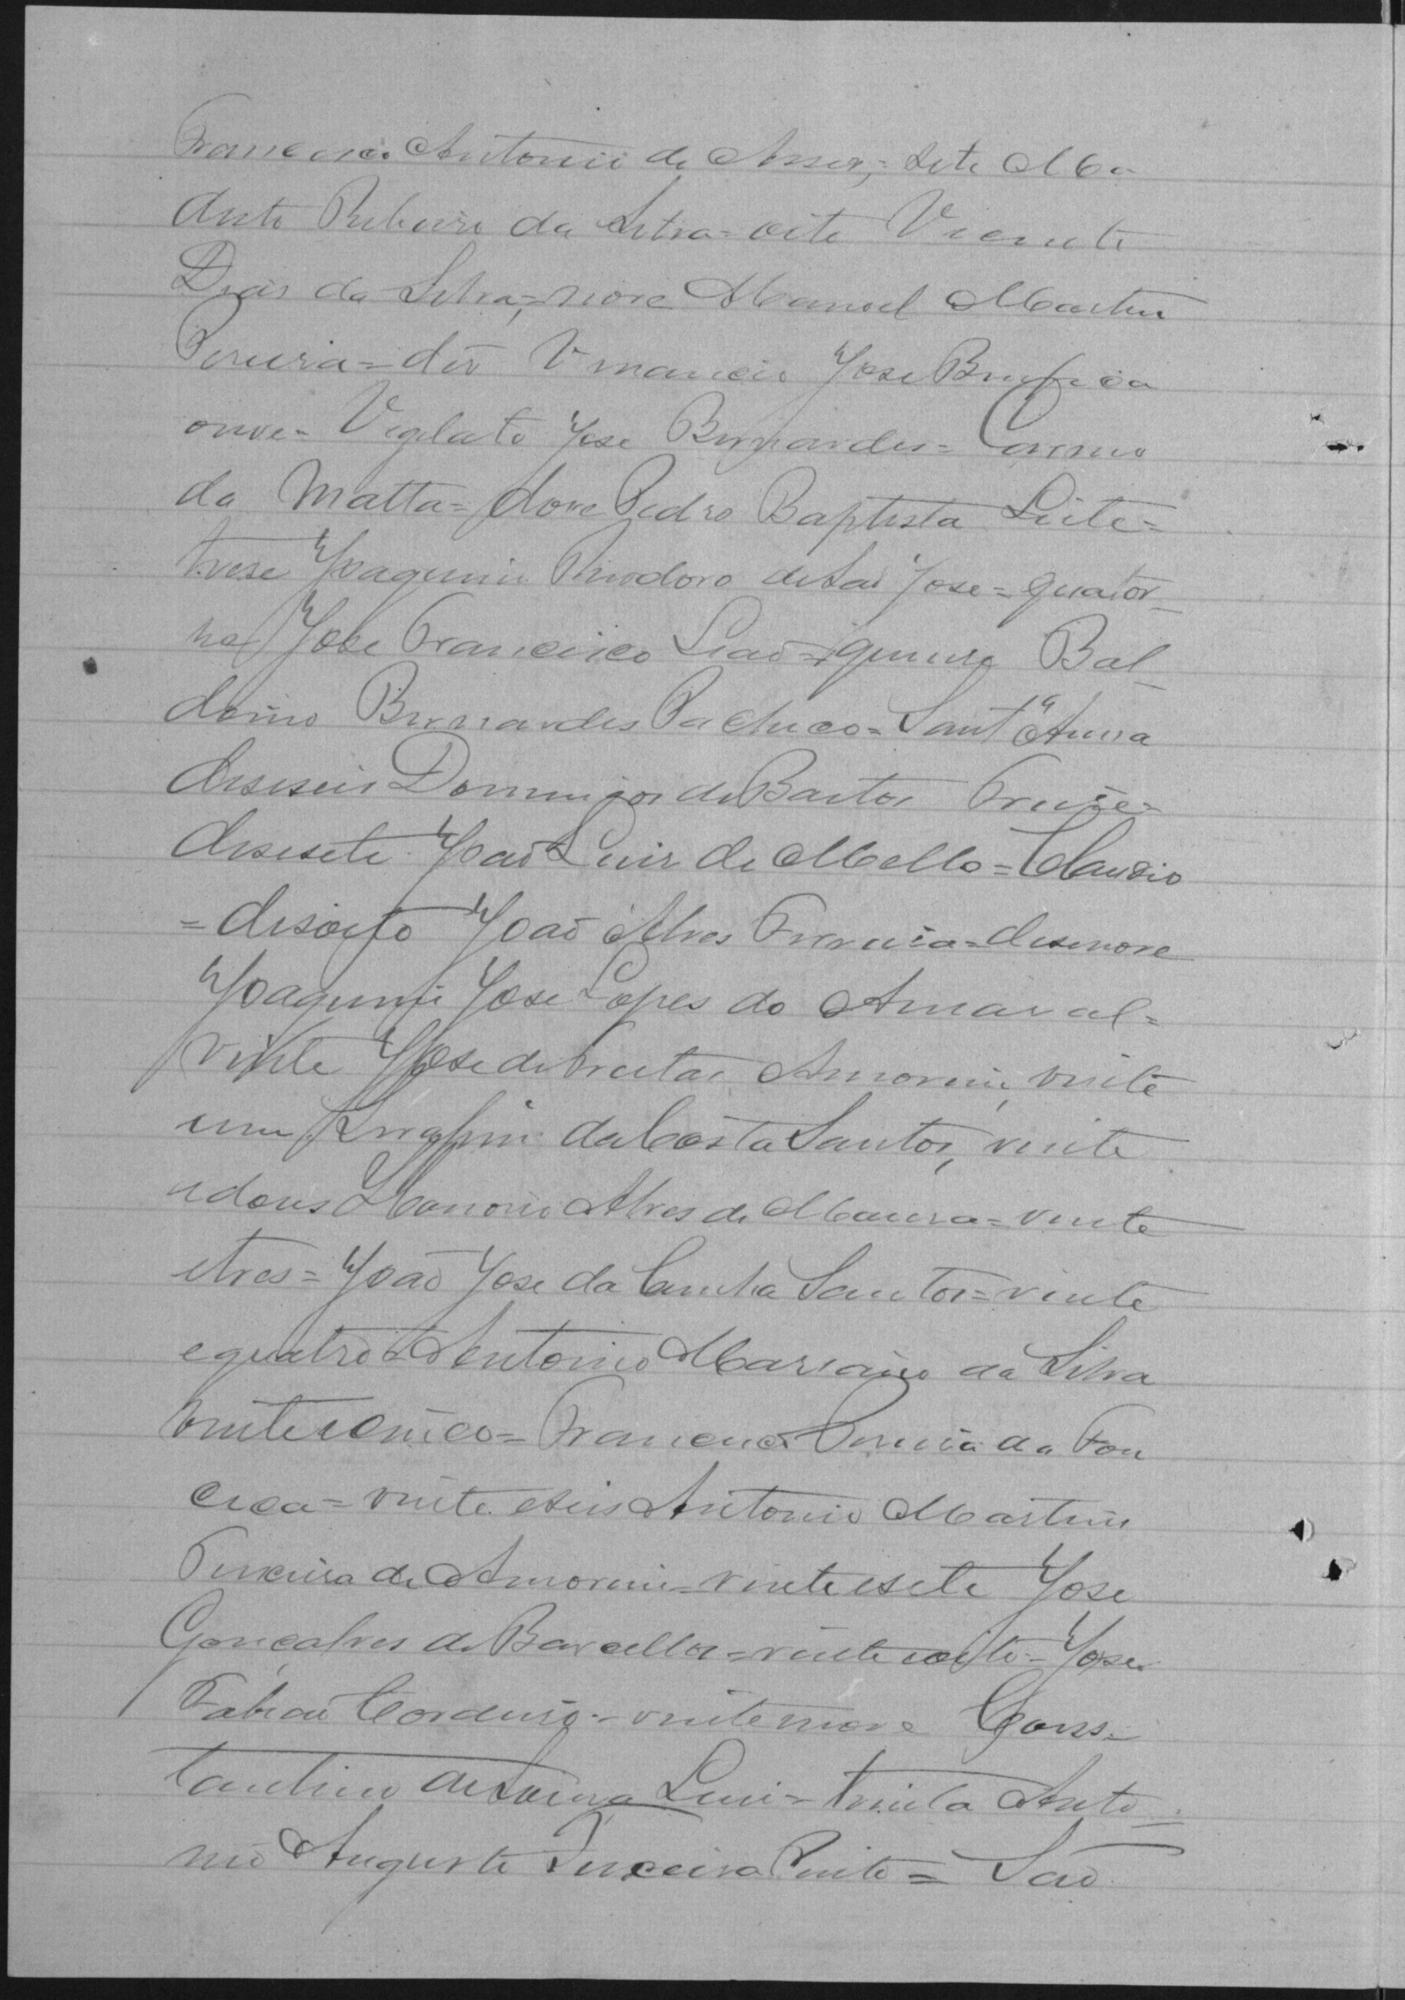 Francisco Antonio de = sete Mo
desto Ribeiro da Silva = oito Vicente
Dias da Silva, = nove Manoel Martins
Pereira = des Venancio Jose Bemfica
onse = Vigilato Jose Bernardes = Carmo
da Matta = dose Pedro Baptista Leite =
trese Joaquim Theodoro de São Jose = quator-
ze Jose Francisco Leão = quinse Bal-
doino Bernardes Pacheco = Sant'Anna
deseseis Domingos de Bastos Freire =
desesete João Luis de Mello = Claudio
= desoito João Alves Ferreira = desenove
Joaquim Jose Lopes do Amaral =
vinte Jose de Freitas Amorim, vinte
um Serafim da Costa Santos, vinte
e dous Honorio Alves de Moura = vinte
e tres = João Jose da Cunha Santos = vinte
e quatro = Antonio Mariano da Silva
vinte e cinco = Francisco Pereira da Fon
ceca = vinte e seis Antonio Martins
Ferreira de Amorim = vinte e sete Jose
Gonçalves de Barcellos = vinte e oito = Jose
Fabião Cordeiro = vinte nove Cons-
tantino de Lima = trinta Anto-
nio Augusto Teixeira Pinto = São